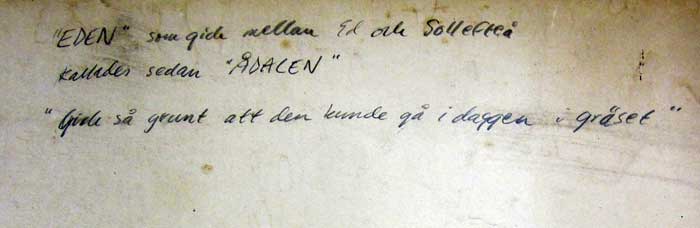 "EDEN" som gick mellan Ed och Sollefteå
kallades sedan "ÅDALEN"
"Gick så grunt att den kunde gå i daggen i gräset"